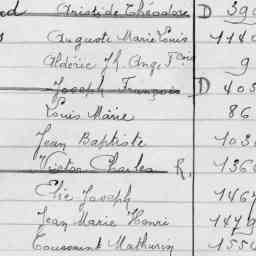 ed Aristide Théodore D 390
s Auguste Marie Louis 1140
Aldéric Jh Ange Fcois 9
Joseph François D 403
Louis Marie 86
Jean Baptiste 103
Victor Charles R. 136
Elie Joseph 1467
Jean Marie Henri 1479
Toussaint Mathurin 1550